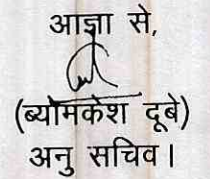 आज्ञा से,
(ब्योमकेश दूबे)
अनु सचिव।